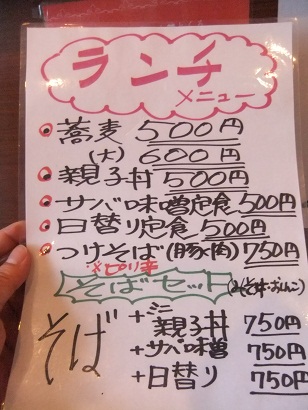 ランチ
メニュー
蕎麦 500円
(大) 600円
親子丼 500円
サバ味噌定食 500円
日替り定食 500円
つけそば(豚肉) 750円
※ピリ辛
そばセット
そば
+ミニ親子丼 750円
+サバ味噌 750円
+日替り 750円